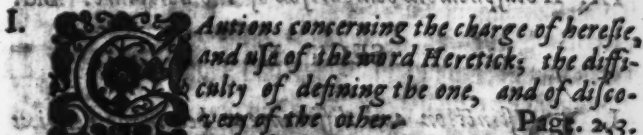 I. CAutions concerning the charge of hereſie,
and uſe of the word Heretick; the diffi-
culty of defining the one, and of diſco-
very of the other. Page. 2,3